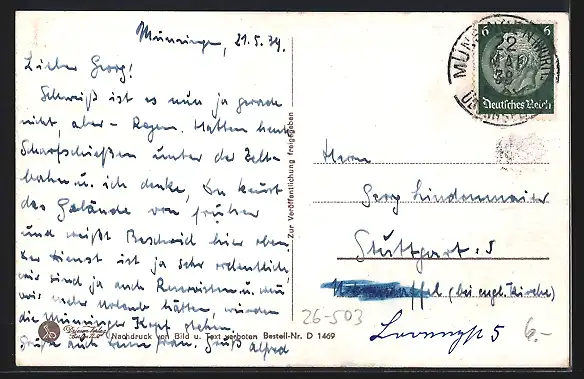 Münsingen, 21.5.39
Lieber Georg!
Schweiß ist es nun ja gerade
nicht, aber - Regen. Hatten heute
Scharfschießen unter der Zelt-
bahn u. ich denke, Du kennst
das Gelände von früher
und weißt Bescheid hier oben.
Der Dienst ist ja sehr ordentlich,
wir sind ja auch Reservisten u. wenn
wir mehr Urlaub hätten, würden
die Münsinger Kopf stehen.
Grüße auch Deine Frau. Gruß Alfred
Nachdruck von Bild u. Text verboten Bestell-Nr. D 1469
Zur Veröffentlichung freigegeben
MÜNSINGEN (WÜRTT)
22
MAI
39
6 6
Deutsches Reich
Herrn
Georg Lindenmaier
Stuttgart-S
(bei engl. Kirche)
26-503
6.-